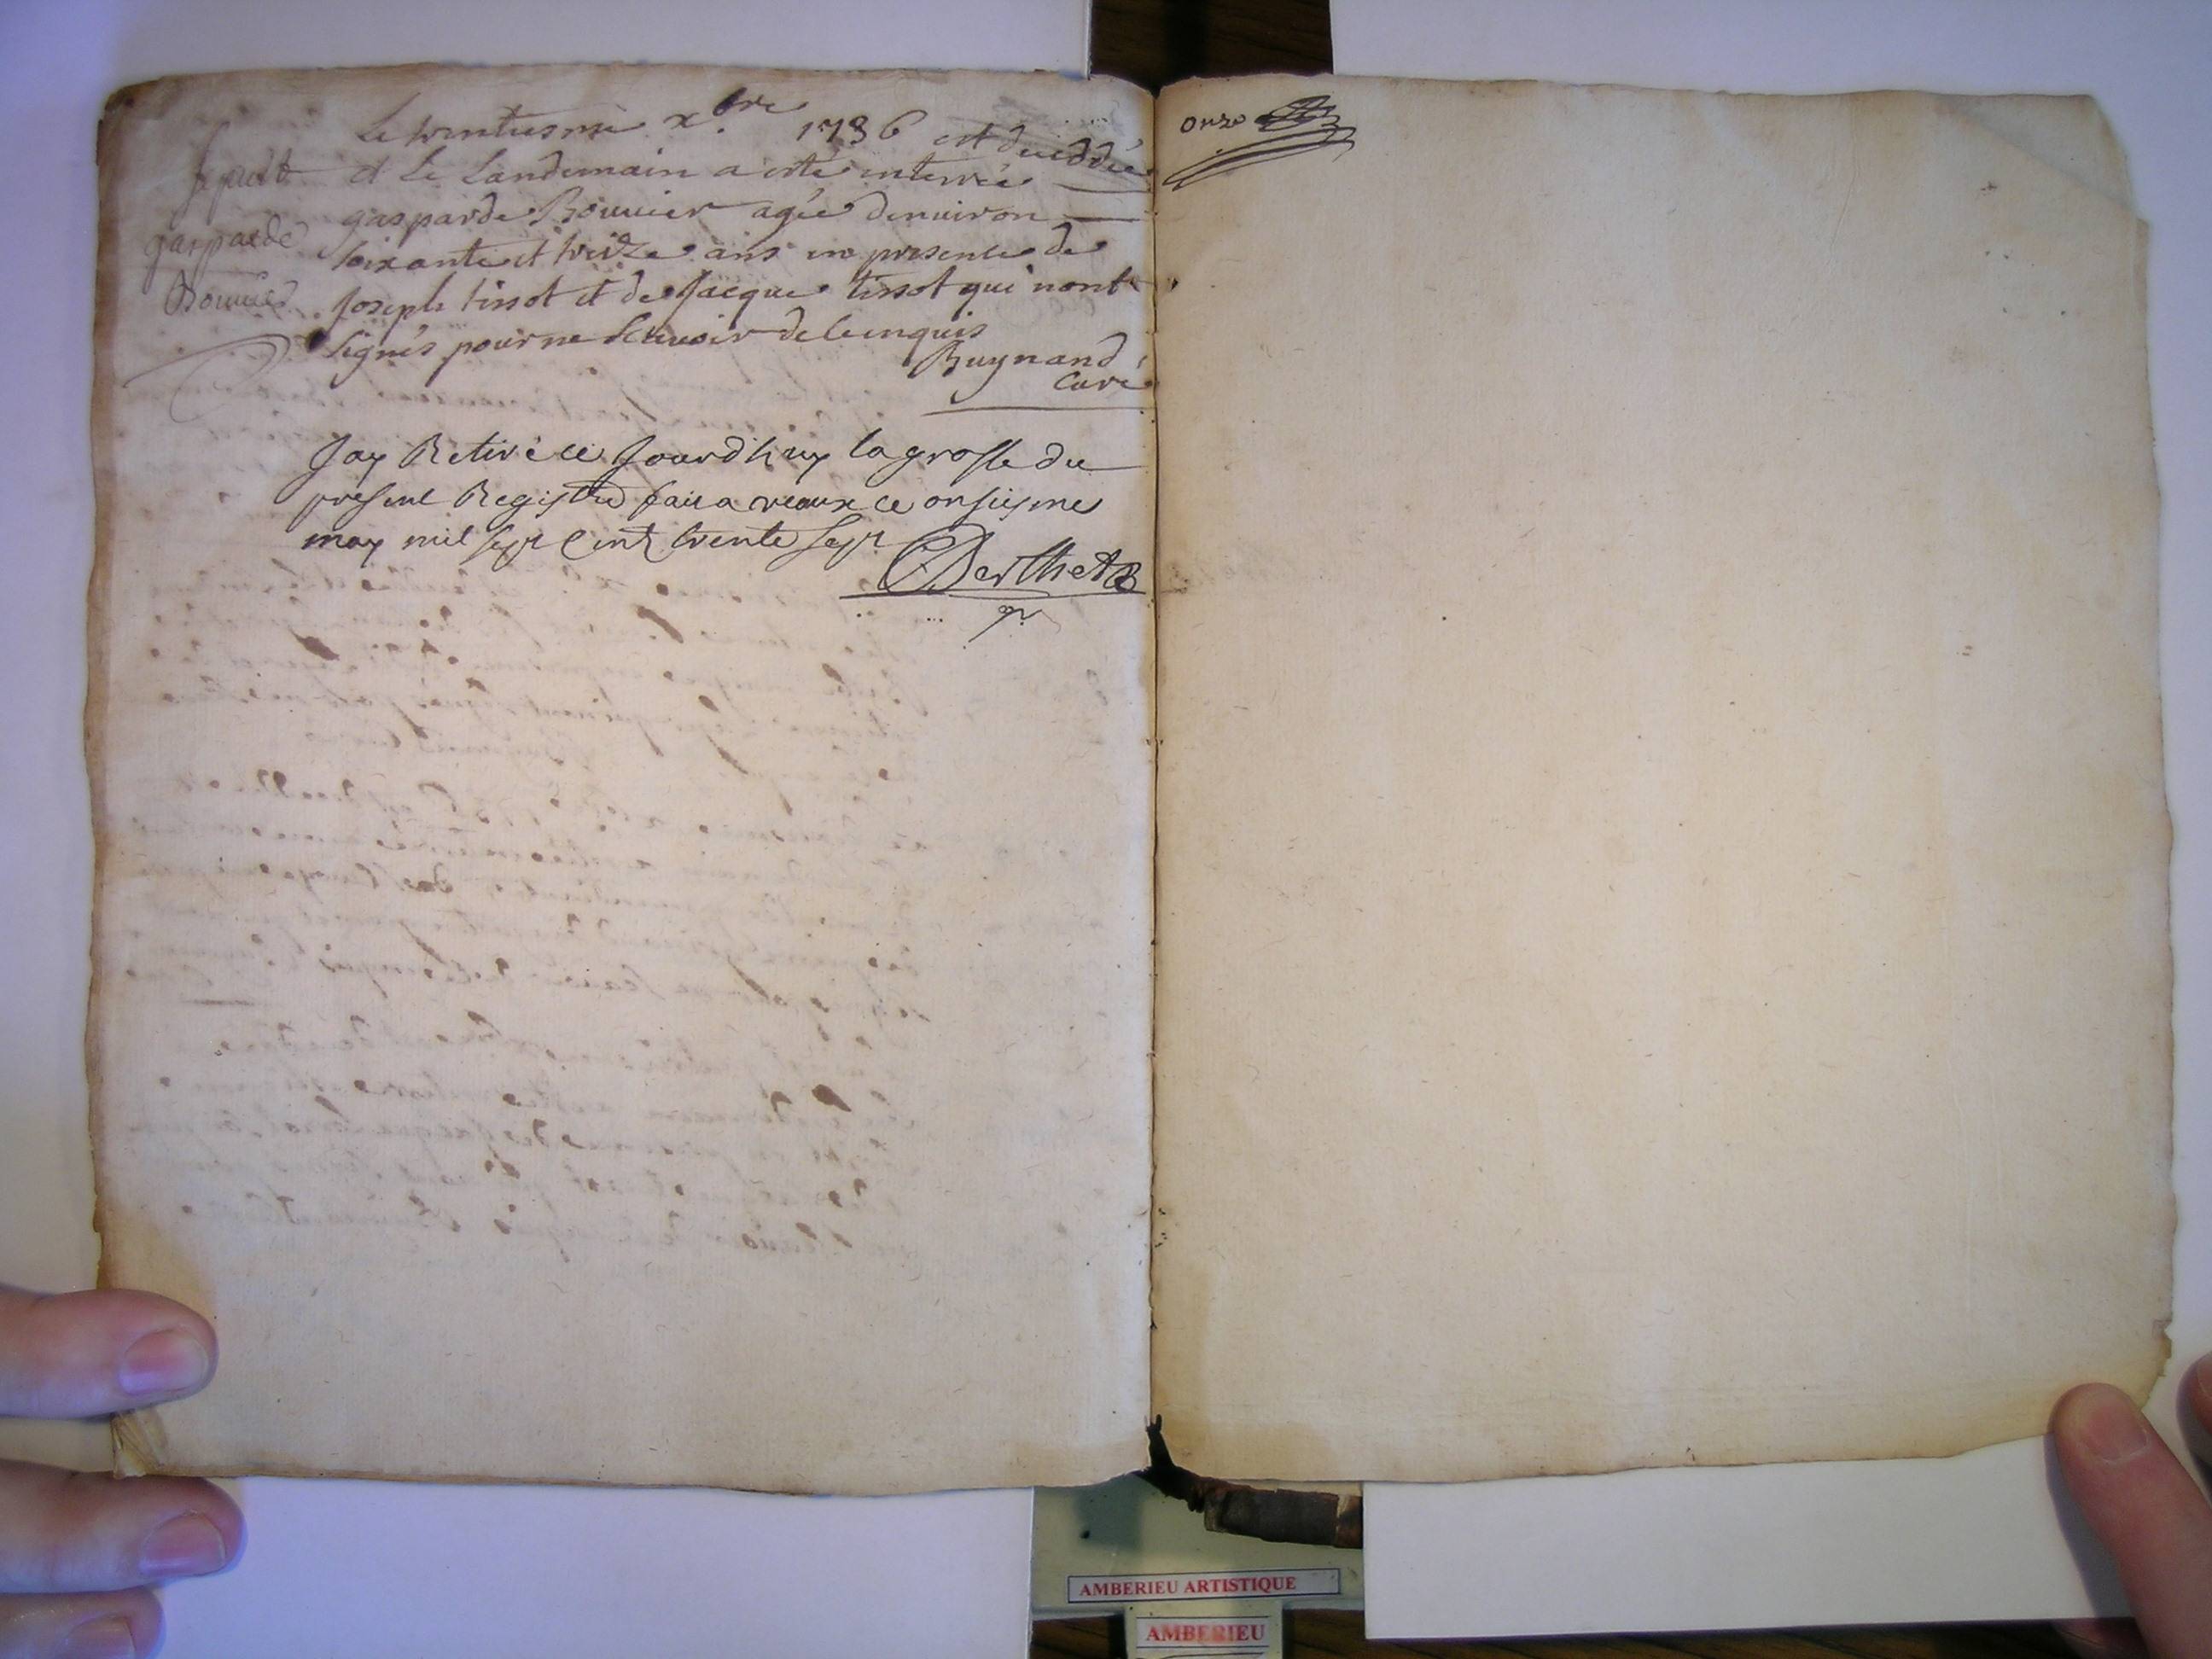 Le trentiesme xbre 1736 est decedée
et Le Landemain a esté enterrée
gasparde Bouuier agée denuiron
soixante et treize ans en presence de
Joseph tissot et de Jacque tissot qui nont
signés pour ne scauoir de ce enquis
Buynand
Curé
Sepult
gasparde
Bouuier
Jay Retiré ce Jourdhuy la grosse du
present Registre fait a vaux ce onsiesme
may mil sept Cent trente sept
Berthet
onze
AMBERIEU ARTISTIQUE
AMBERIEU